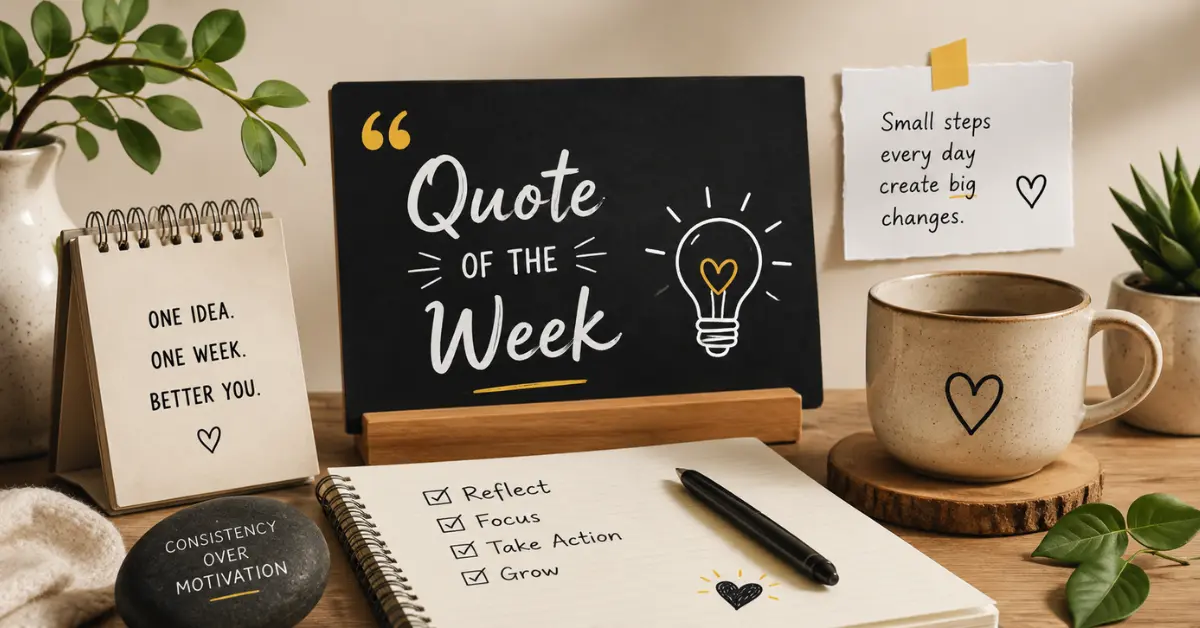 “
Quote
OF THE
Week
Small steps
every day
create big
changes.
ONE IDEA.
ONE WEEK.
BETTER YOU.
Reflect
Focus
Take Action
Grow
CONSISTENCY
OVER
MOTIVATION